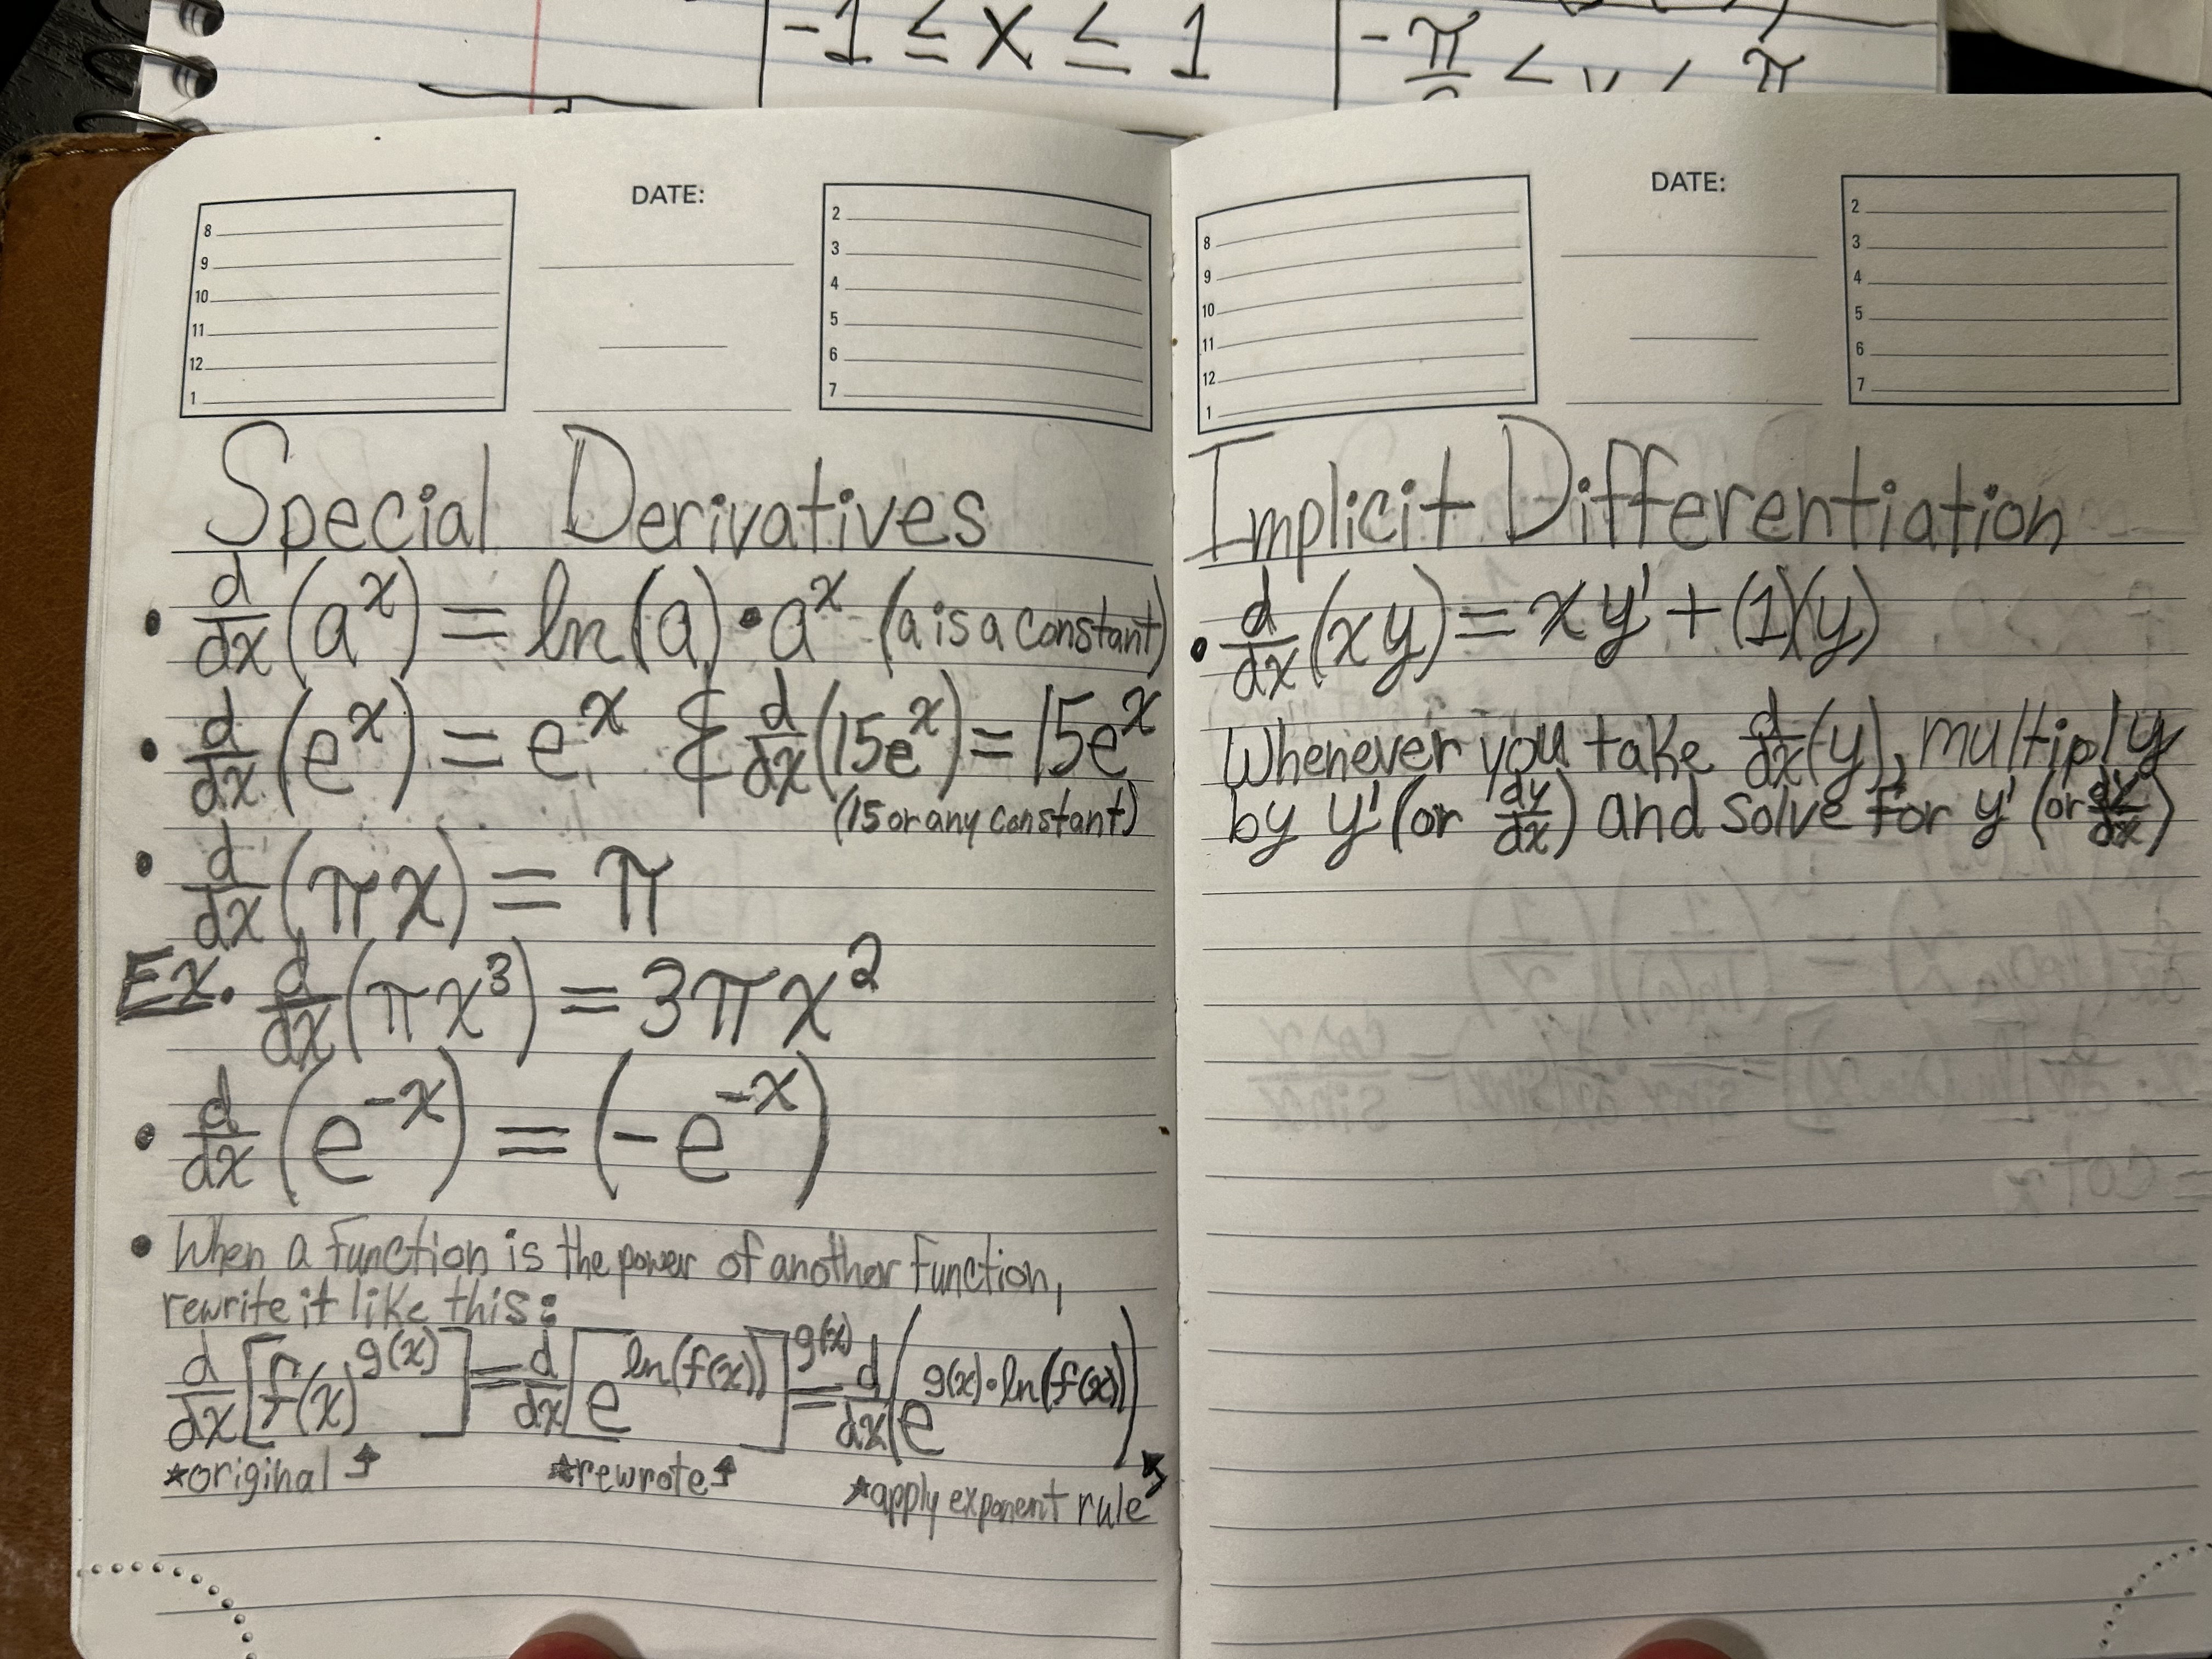 DATE:
8
9
10
11
12
1
2
3
4
5
6
7
Special Derivatives
• d/dx (a^x) = ln(a) • a^x (a is a constant)
• d/dx (e^x) = e^x & d/dx (15e^x) = 15e^x
(15 or any constant)
• d/dx (πx) = π
Ex. d/dx (πx^3) = 3πx^2
• d/dx (e^-x) = (-e^-x)
• When a function is the power of another function,
rewrite it like this:
d/dx [f(x)^g(x)] = d/dx [e^ln(f(x))]^g(x) = d/dx (e^g(x)•ln(f(x)))
*original *rewrote *apply exponent rule
DATE:
8
9
10
11
12
1
2
3
4
5
6
7
Implicit Differentiation
• d/dx (xy) = xy' + (1)(y)
Whenever you take d/dx (y), multiply
by y' (or dy/dx) and solve for y' (or dy/dx)
-1 ≤ x ≤ 1